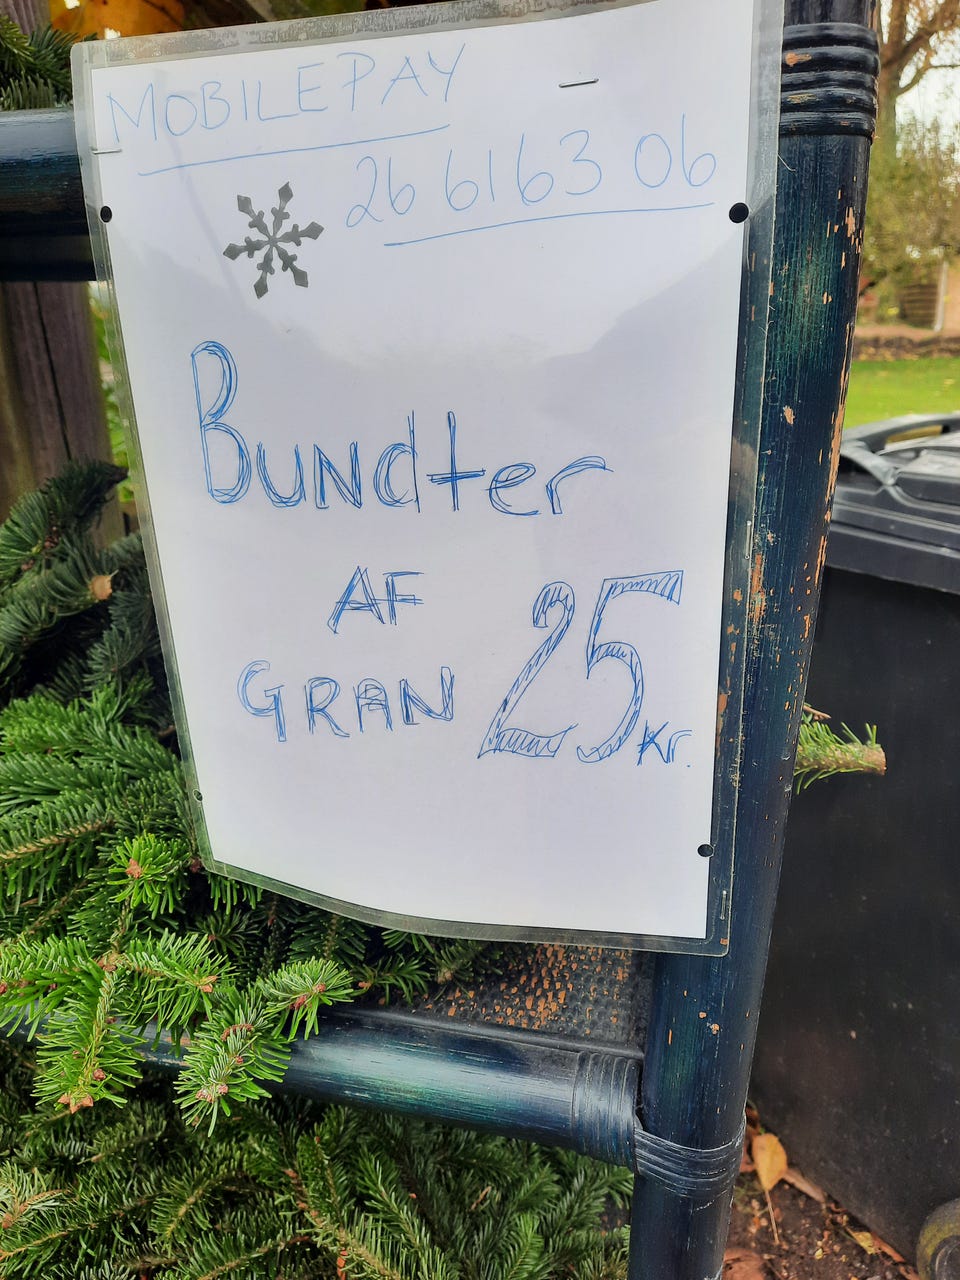 MOBILEPAY
26 61 63 06
Bundter
AF
GRAN 25 kr.